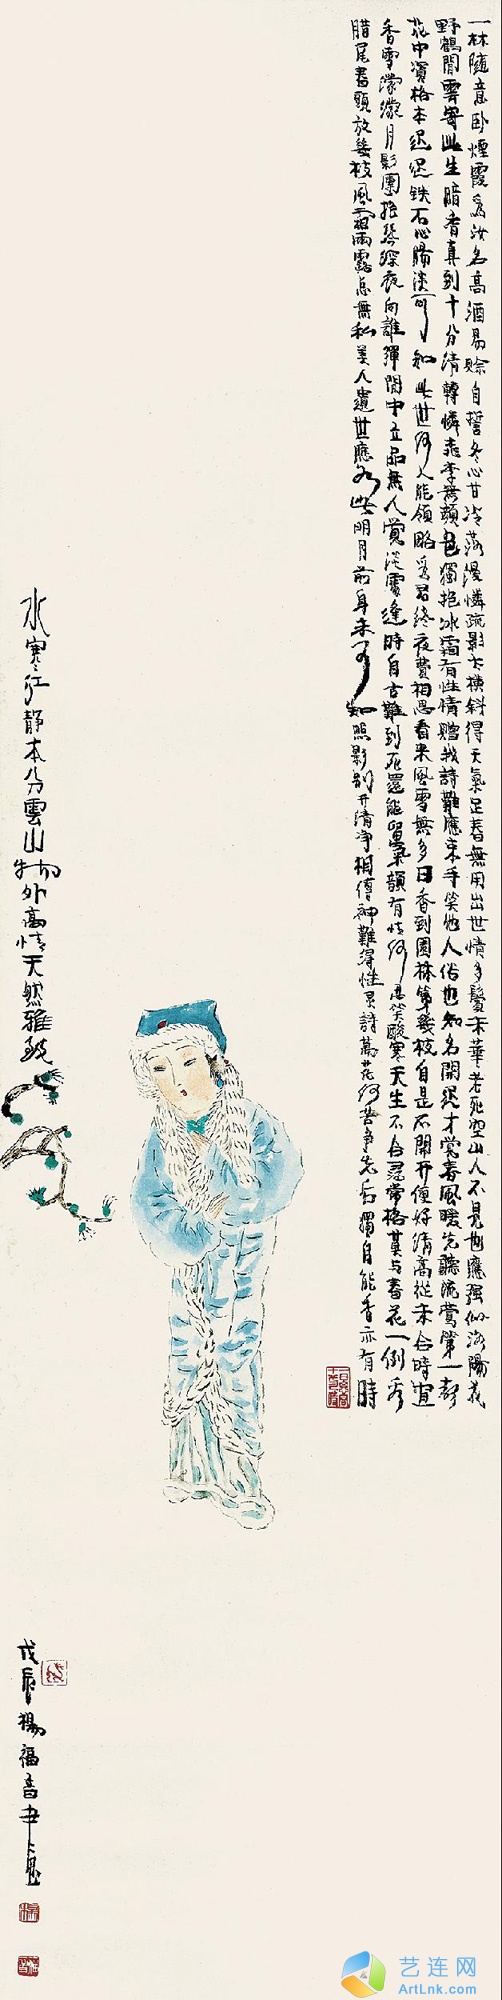 一林隨意卧煙霞為汝名高酒易賒自誓冬心甘冷落漫憐疏影太橫斜得天氣足春無用出世情多鬢未華老死空山人不見也應強似洛陽花
野鶴閒雲寄此生暗香真到十分清轉憐桃李無顏色獨抱冰霜有性情贈我詩難應束手笑他人俗也知名開遲才覺春風暖先聽流鶯第一聲
花中資格本遲遲鉄石心腸淡可知此世何人能領略為君終夜費相思看來風雪無多日香到園林第幾枝自是不開開便好清高從未合時宜
香雪濛濛月影團抱琴深夜向誰彈閒中立品無人覺淡處逢時自古難到死還能留氣韻有情何忍笑酸寒天生不合尋常格莫與春花一例看
腊尾春頭放幾枝風霜雨露總無私美人遺世應如此明月前身未可知照影別開清淨相傳神難得性靈詩萬花何苦爭先后獨自能香亦有時
水寒江靜本分雲山物外高情天然雅致
戊辰楊福音
艺连网
ArtLnk.com